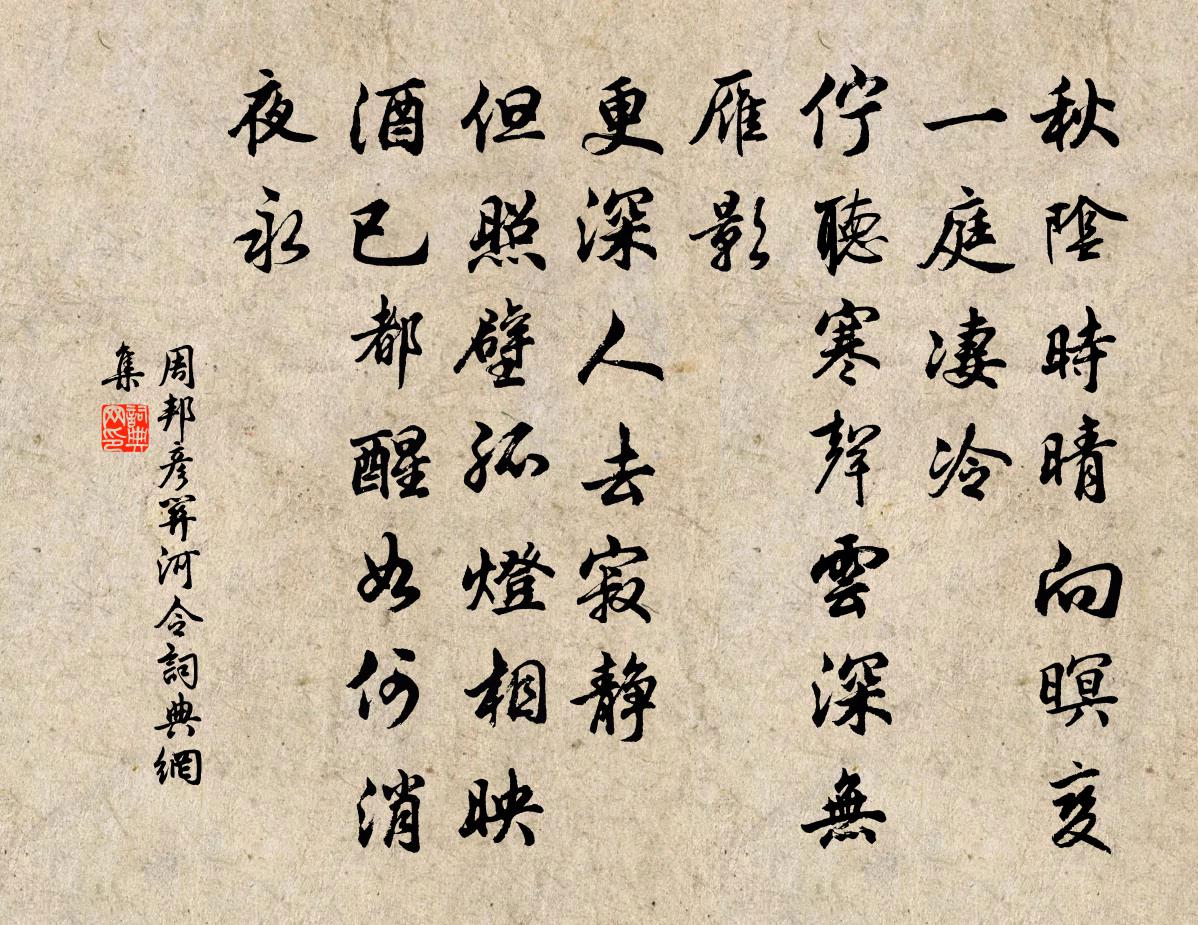 秋陰時晴向暝變
一庭凄冷
佇聽寒聲雲深無
雁影
更深人去寂靜
但照壁孤燈相映
酒已都醒如何消
夜永
周邦彥關河令詞典網
集
詞典
网印